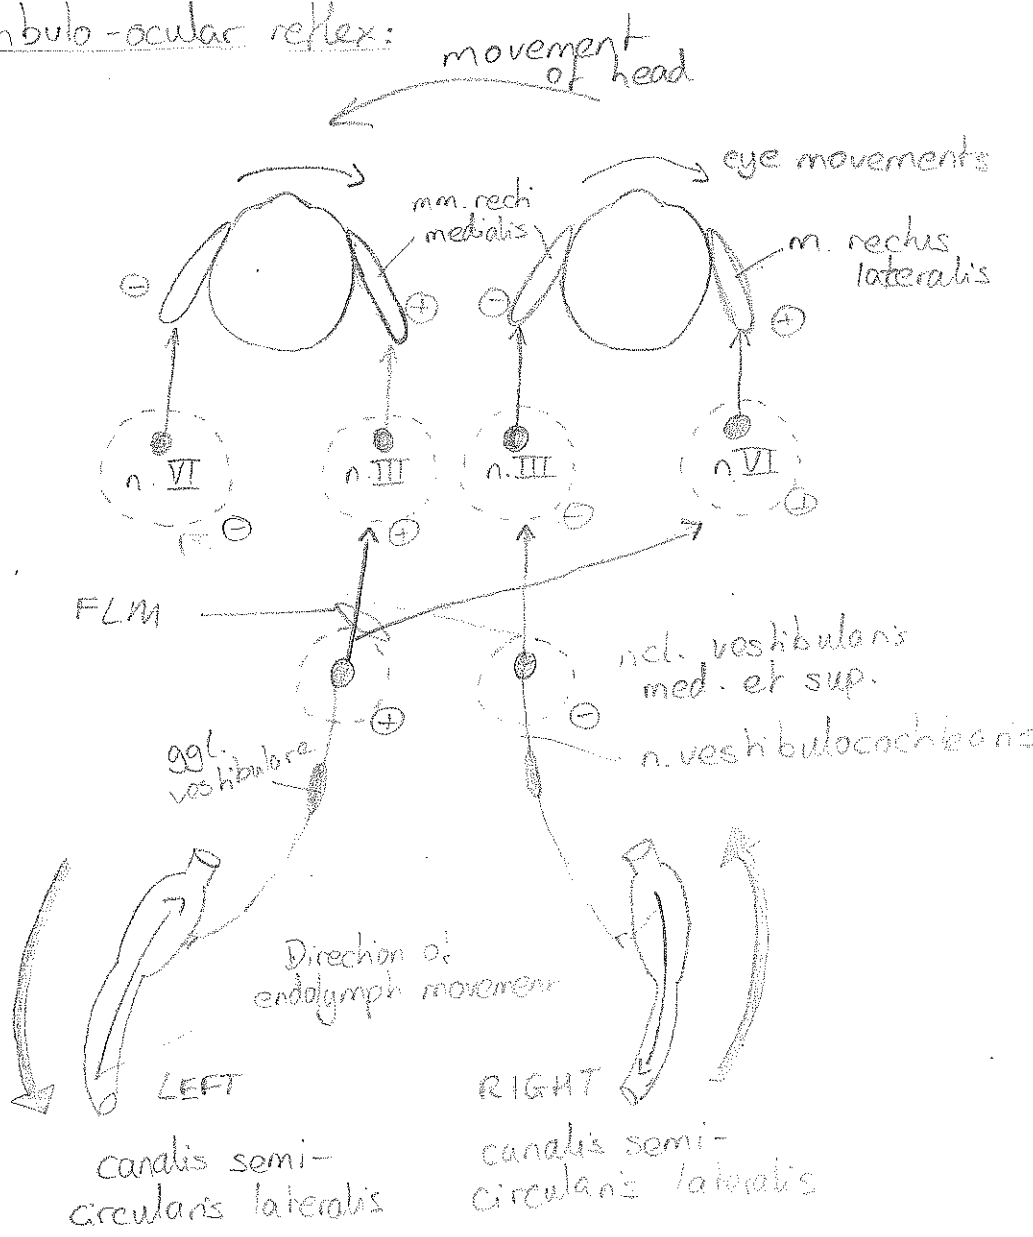 nbulo-ocular reflex:
movement
of head
eye movements
mm. recti
medialis
m. rectus
lateralis
n. VI
n. III
n. III
n. VI
FLM
ncl. vestibularis
med. et sup.
ggl.
vestibulare
n. vestibulocochlearis
Direction of
endolymph movement
LEFT
RIGHT
canalis semi-
circularis lateralis
canalis semi-
circularis lateralis